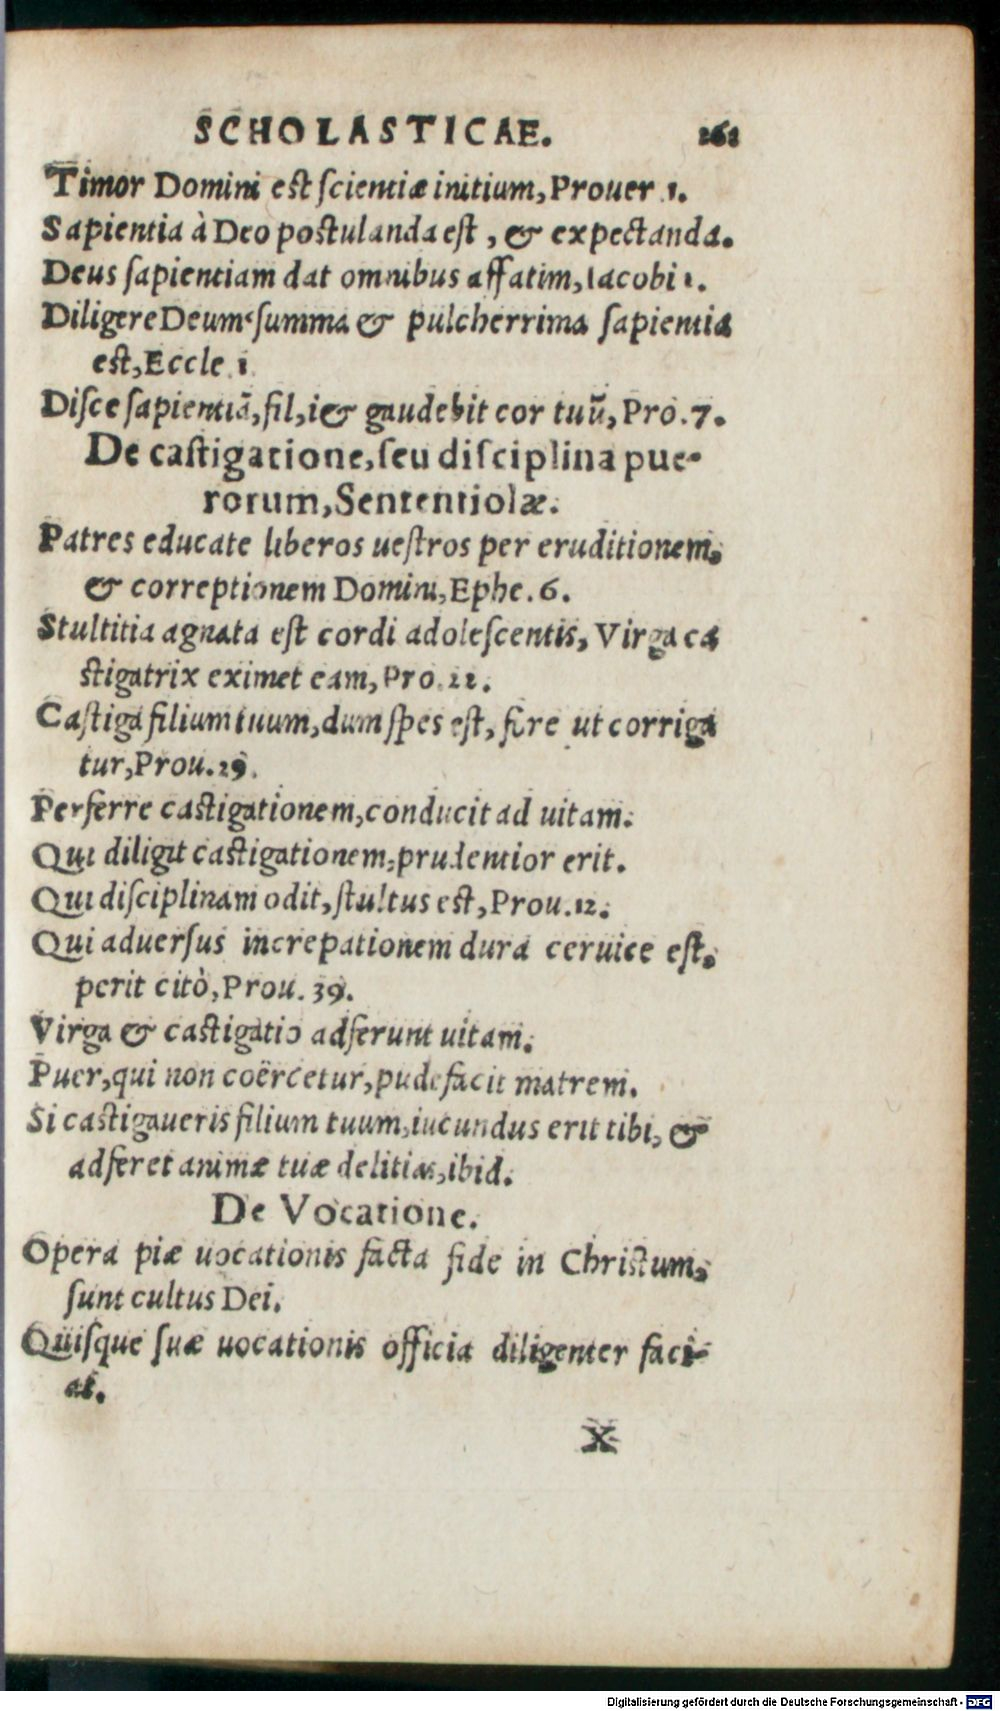 SCHOLASTICAE. 161
Timor Domini est scientiæ initium, Prouer. 1.
Sapientia à Deo postulanda est, & expectanda.
Deus sapientiam dat omnibus affatim, Iacobi 1.
Diligere Deum summa & pulcherrima sapientia
est, Eccle. 1
Disce sapientiã, fil, i & gaudebit cor tuũ, Pro. 7.
De castigatione, seu disciplina pue-
rorum, Sententiolæ.
Patres educate liberos uestros per eruditionem,
& correptionem Domini, Ephe. 6.
Stultitia agnata est cordi adolescentis, Virga ca
stigatrix eximet eam, Pro. 22.
Castiga filium tuum, dum spes est, fore ut corriga
tur, Prou. 19.
Perferre castigationem, conducit ad uitam.
Qui diligit castigationem, prudentior erit.
Qui disciplinam odit, stultus est, Prou. 12.
Qui aduersus increpationem dura ceruice est,
perit citò, Prou. 39.
Virga & castigatio adferunt uitam.
Puer, qui non coërcetur, pudefacit matrem.
Si castigaueris filium tuum, iucundus erit tibi, &
adferet animæ tuæ delitias, ibid.
De Vocatione.
Opera piæ uocationis facta fide in Christum,
sunt cultus Dei.
Quisque suæ uocationis officia diligenter faci-
at.
X
Digitalisierung gefördert durch die Deutsche Forschungsgemeinschaft - DFG